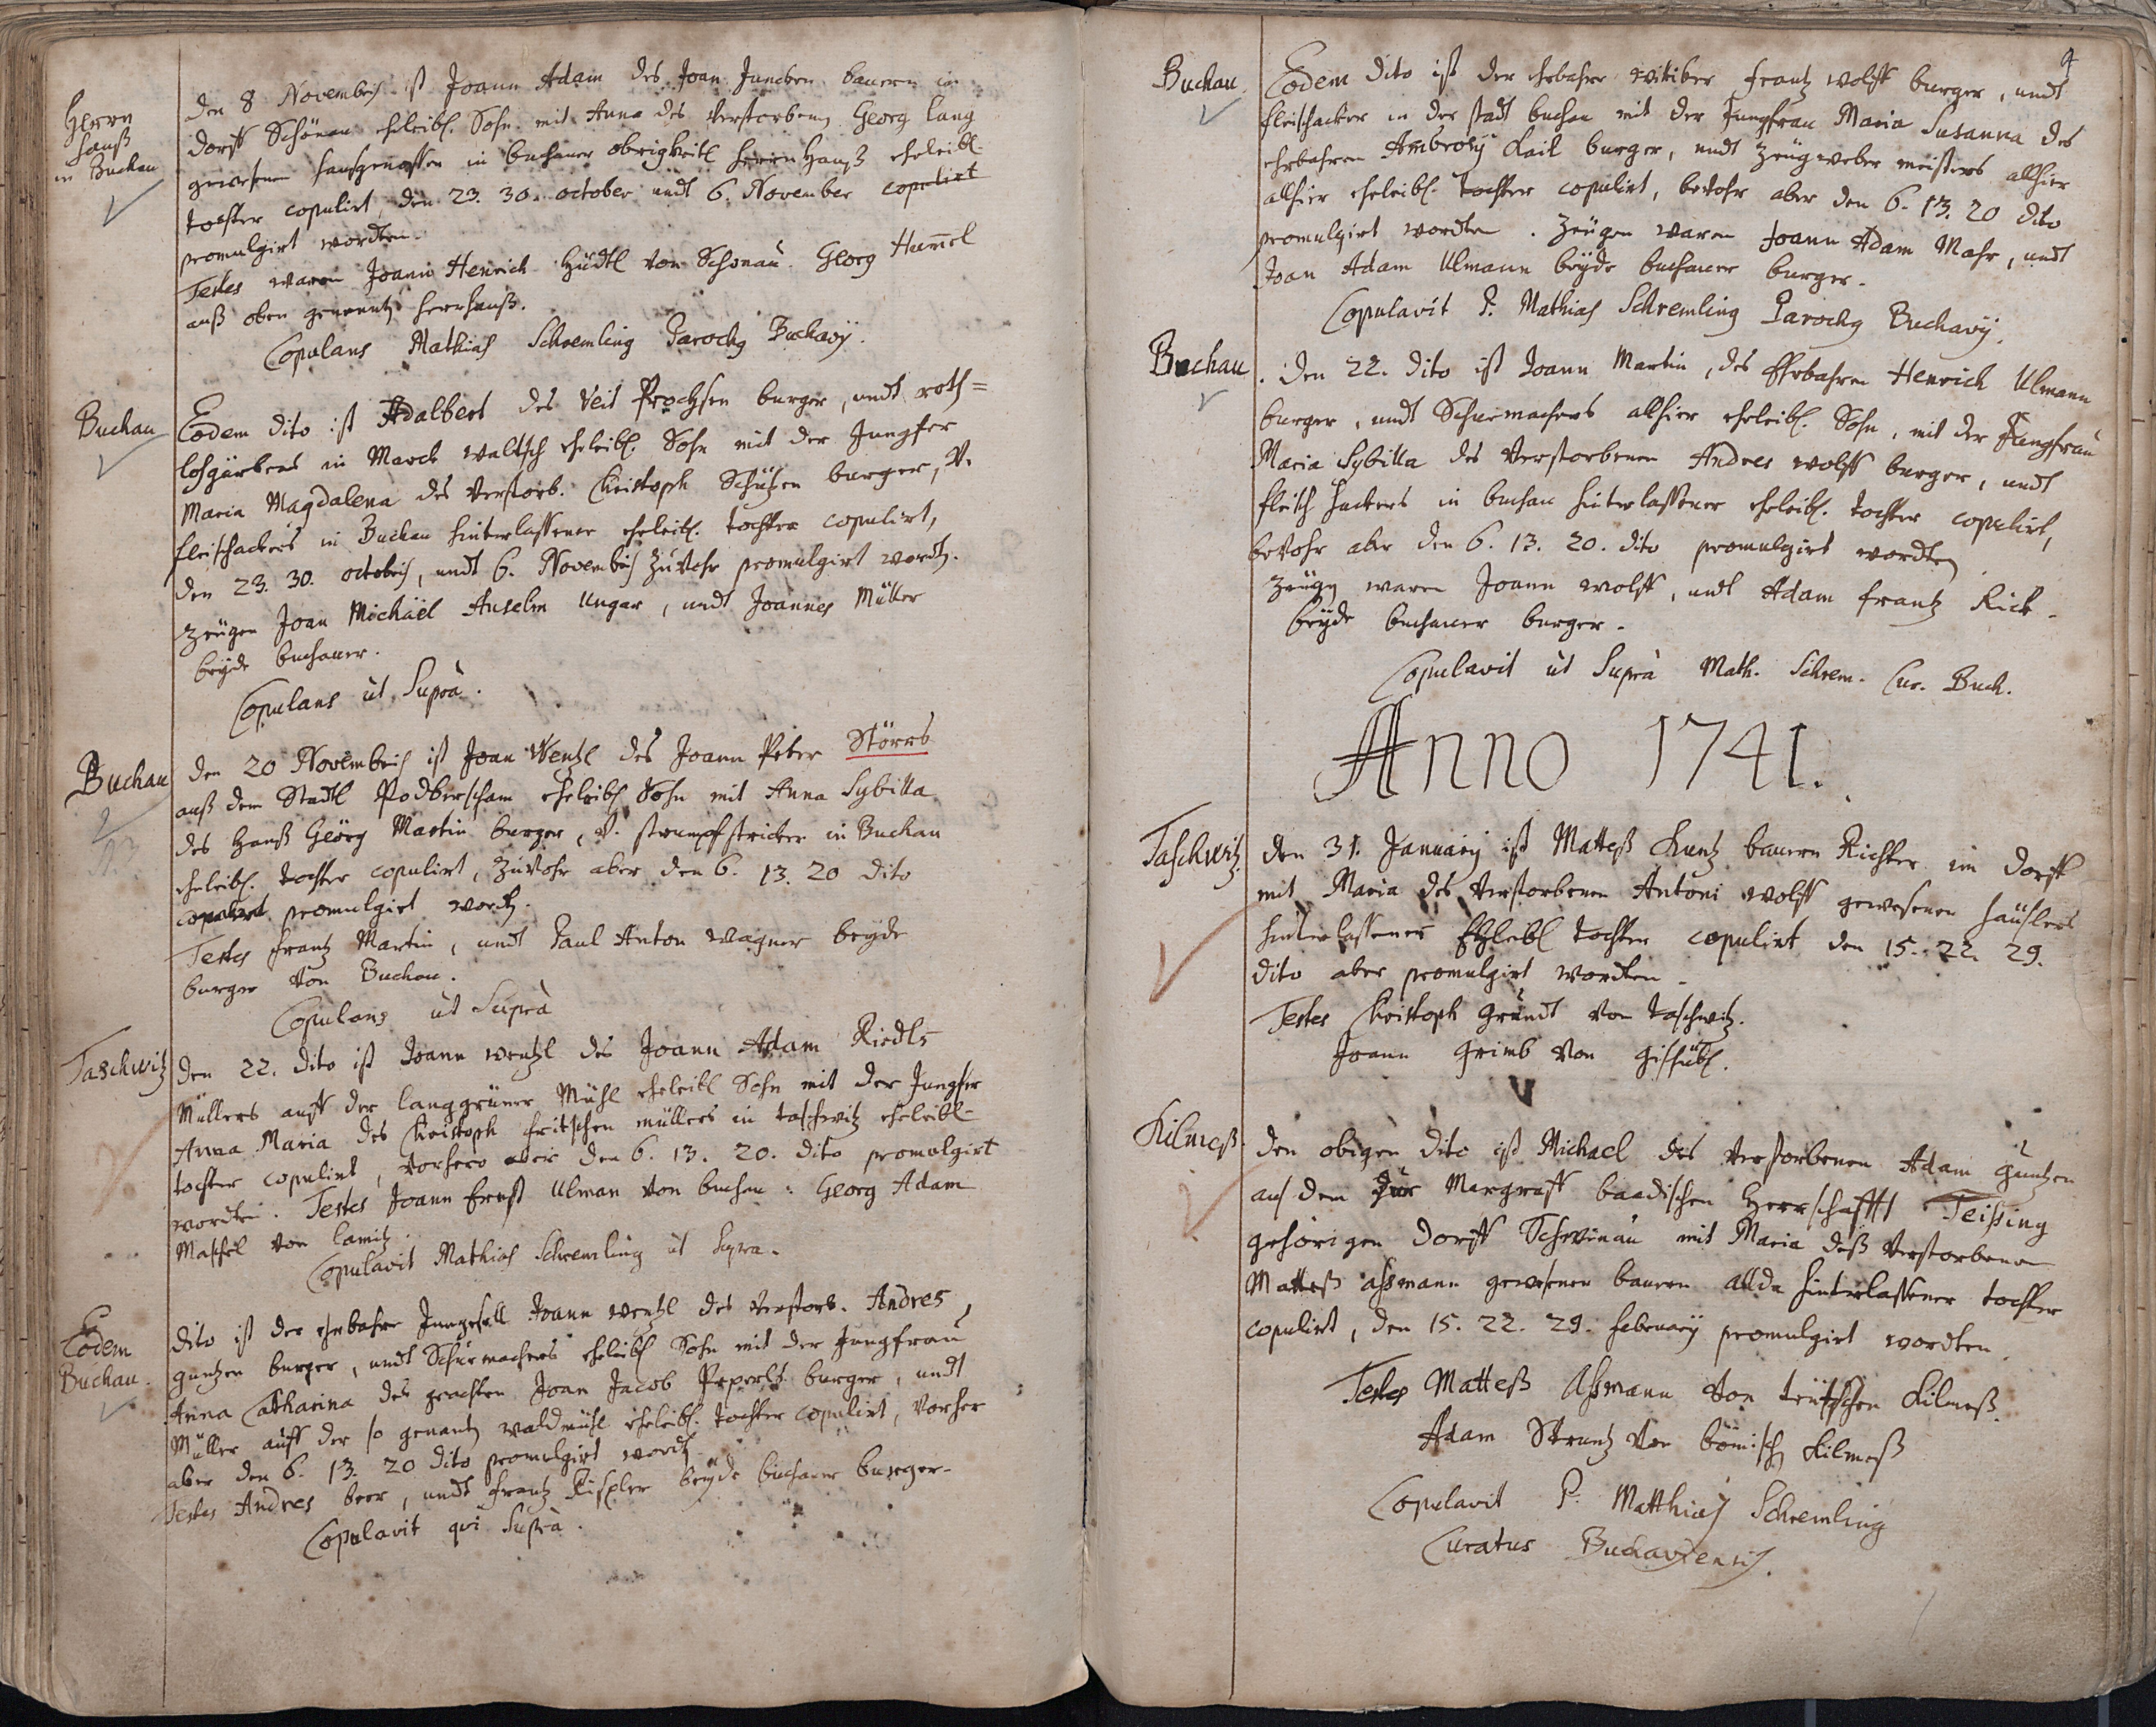 Herrn
hauß
in Buchau
den 8 Novembris ist Joann Adam des Joan Juncken bauern in
dorff Schönau eheleibl. Sohn mit Anna des verstorbenen Georg Lang
gewesenen hausgenossen in buchauer obrigkeitl herrn Hauß eheleibl.
tochter copulirt, den 23. 30. october undt 6. November copulirt
promulgirt wordten.
Testes waren Joann Henrich Hüdtl von Schönau. Georg Hummel
auß oben genenntn herrhauß.
Copulans Mathias Schremling Parochg Buchavij.
Buchau
Eodem dito ist Adalbert des Veit Prochsen burger, undt roth=
lohgärbers in Marck waltsch eheleibl. Sohn mit der Jungfer
Maria Magdalena des verstorb. Christoph Schützen burger, V.
fleischackers in Buchau hinterlassener eheleibl. tochter copulirt,
den 23. 30. octobris, undt 6. Novembris zuvohr promulgirt wordn.
Zeugen Joan Michäel Anselm Ungar, undt Joannes Müller
beyde buchauer.
Copulans ùt Suprà.
Buchau
den 20 Novembris ist Joan Wentzl des Joann Peter Störrs
auß dem Stadtl Podberscham eheleibl Sohn mit Anna Sybilla
des Hanß Geörg Martin burger, V. strumpfstricker in Buchau
eheleibl. tochter copulirt, zuvohr aber den 6. 13. 20 dito
copulirt promulgirt wordn.
Testes Frantz Martin, undt Paul Anton Wagner beyde
burger von Buchau.
Copulans ùt Suprà
Taschwitz
den 22. dito ist Joann wentzl des Joann Adam Riedls
Müllers auff der langgrüner Mühl eheleibl Sohn mit der Jungfer
Anna Maria des Christoph fritschen müllers in taschwitz eheleibl-
tochter copulirt, vorhero aber den 6. 13. 20. dito promulgirt
wordten. Testes Joann Ernst Ulman von buchau: Georg Adam
Maschel von lamitz.
Copulavit Mathias Schremling ùt Supra.
Eodem
Buchau.
dito ist der ehrbahre Junggesell Joann wentzl des verstorb. Andres
guntzen burger, undt Schuemachers eheleibl Sohn mit der Jungfrau
Anna Catharina des geachten Joan Jacob Peperls burger, undt
Müller auff der so genantn waldmühl eheleibl. tochter copulirt, vorher
aber den 6. 13. 20 dito promulgirt wordn
Testes Andres beer, undt frantz Rispler beyde buchauer burger.
Copulavit qvi Suprà.
9
Buchau
Eodem dito ist der ehrbahre wittiber frantz wolff burger, undt
fleischacker in der stadt buchau mit der Jungfrau Maria Susanna des
ehrbahren Ambrosij Kail burger, undt Zeugweber meisters allhier
allhier eheleibl. tochter copulirt, bevohr aber den 6. 13. 20 dito
promulgirt wordten. Zeugen waren Joann Adam Mahr, undt
Joan Adam Ulmann beyde buchauer burger.
Copulavit P. Mathias Schremling Parochg Buchavij.
Buchau
den 22. dito ist Joann Martin, des Ehrbahren Henrich Ulmann
burger, undt Schuemachers allhier eheleibl. Sohn, mit der Jungfrau
Maria Sybilla des verstorbenen Andres wolff burger, undt
fleisch hackers in buchau hinterlassener eheleibl. tochter copulirt,
bevohr aber den 6. 13. 20. dito promulgirt wordten
Zeugn waren Joann wolff, undt Adam frantz Rick
beyde buchauer burger.
Copulavit ùt Suprà Math. Schrem. Cur. Buch.
Anno 1741.
Taschwitz.
den 31. Januarij ist Matteß Kuntz bauern Richter im dorff
mit Maria des verstorbenen Antoni wolff gewesenen häuslers
hinterlassener Ehleibl tochter copulirt den 15. 22. 29.
dito aber promulgirt wordten.
Testes Christoph Grundt von taschwitz.
Joann Grimb von Gishübl.
Kilmeß.
den obigen dito ist Michael des verstorbenen Adam guntzen
aus dem zur Margraff baadischen Herrschafft Teißing
gehörigen dorff Schwinau mit Maria deß verstorbenen
Matteß Aßmann gewesenen bauren allda hinterlassener tochter
copulirt, den 15. 22. 29. february promulgirt wordten
Testes Matteß Aßmann von teutschen Kilmeß.
Adam Struntz von bömisch Kilmeß
Copulavit P. Matthias Schremling
Curatus Buchaviensis.